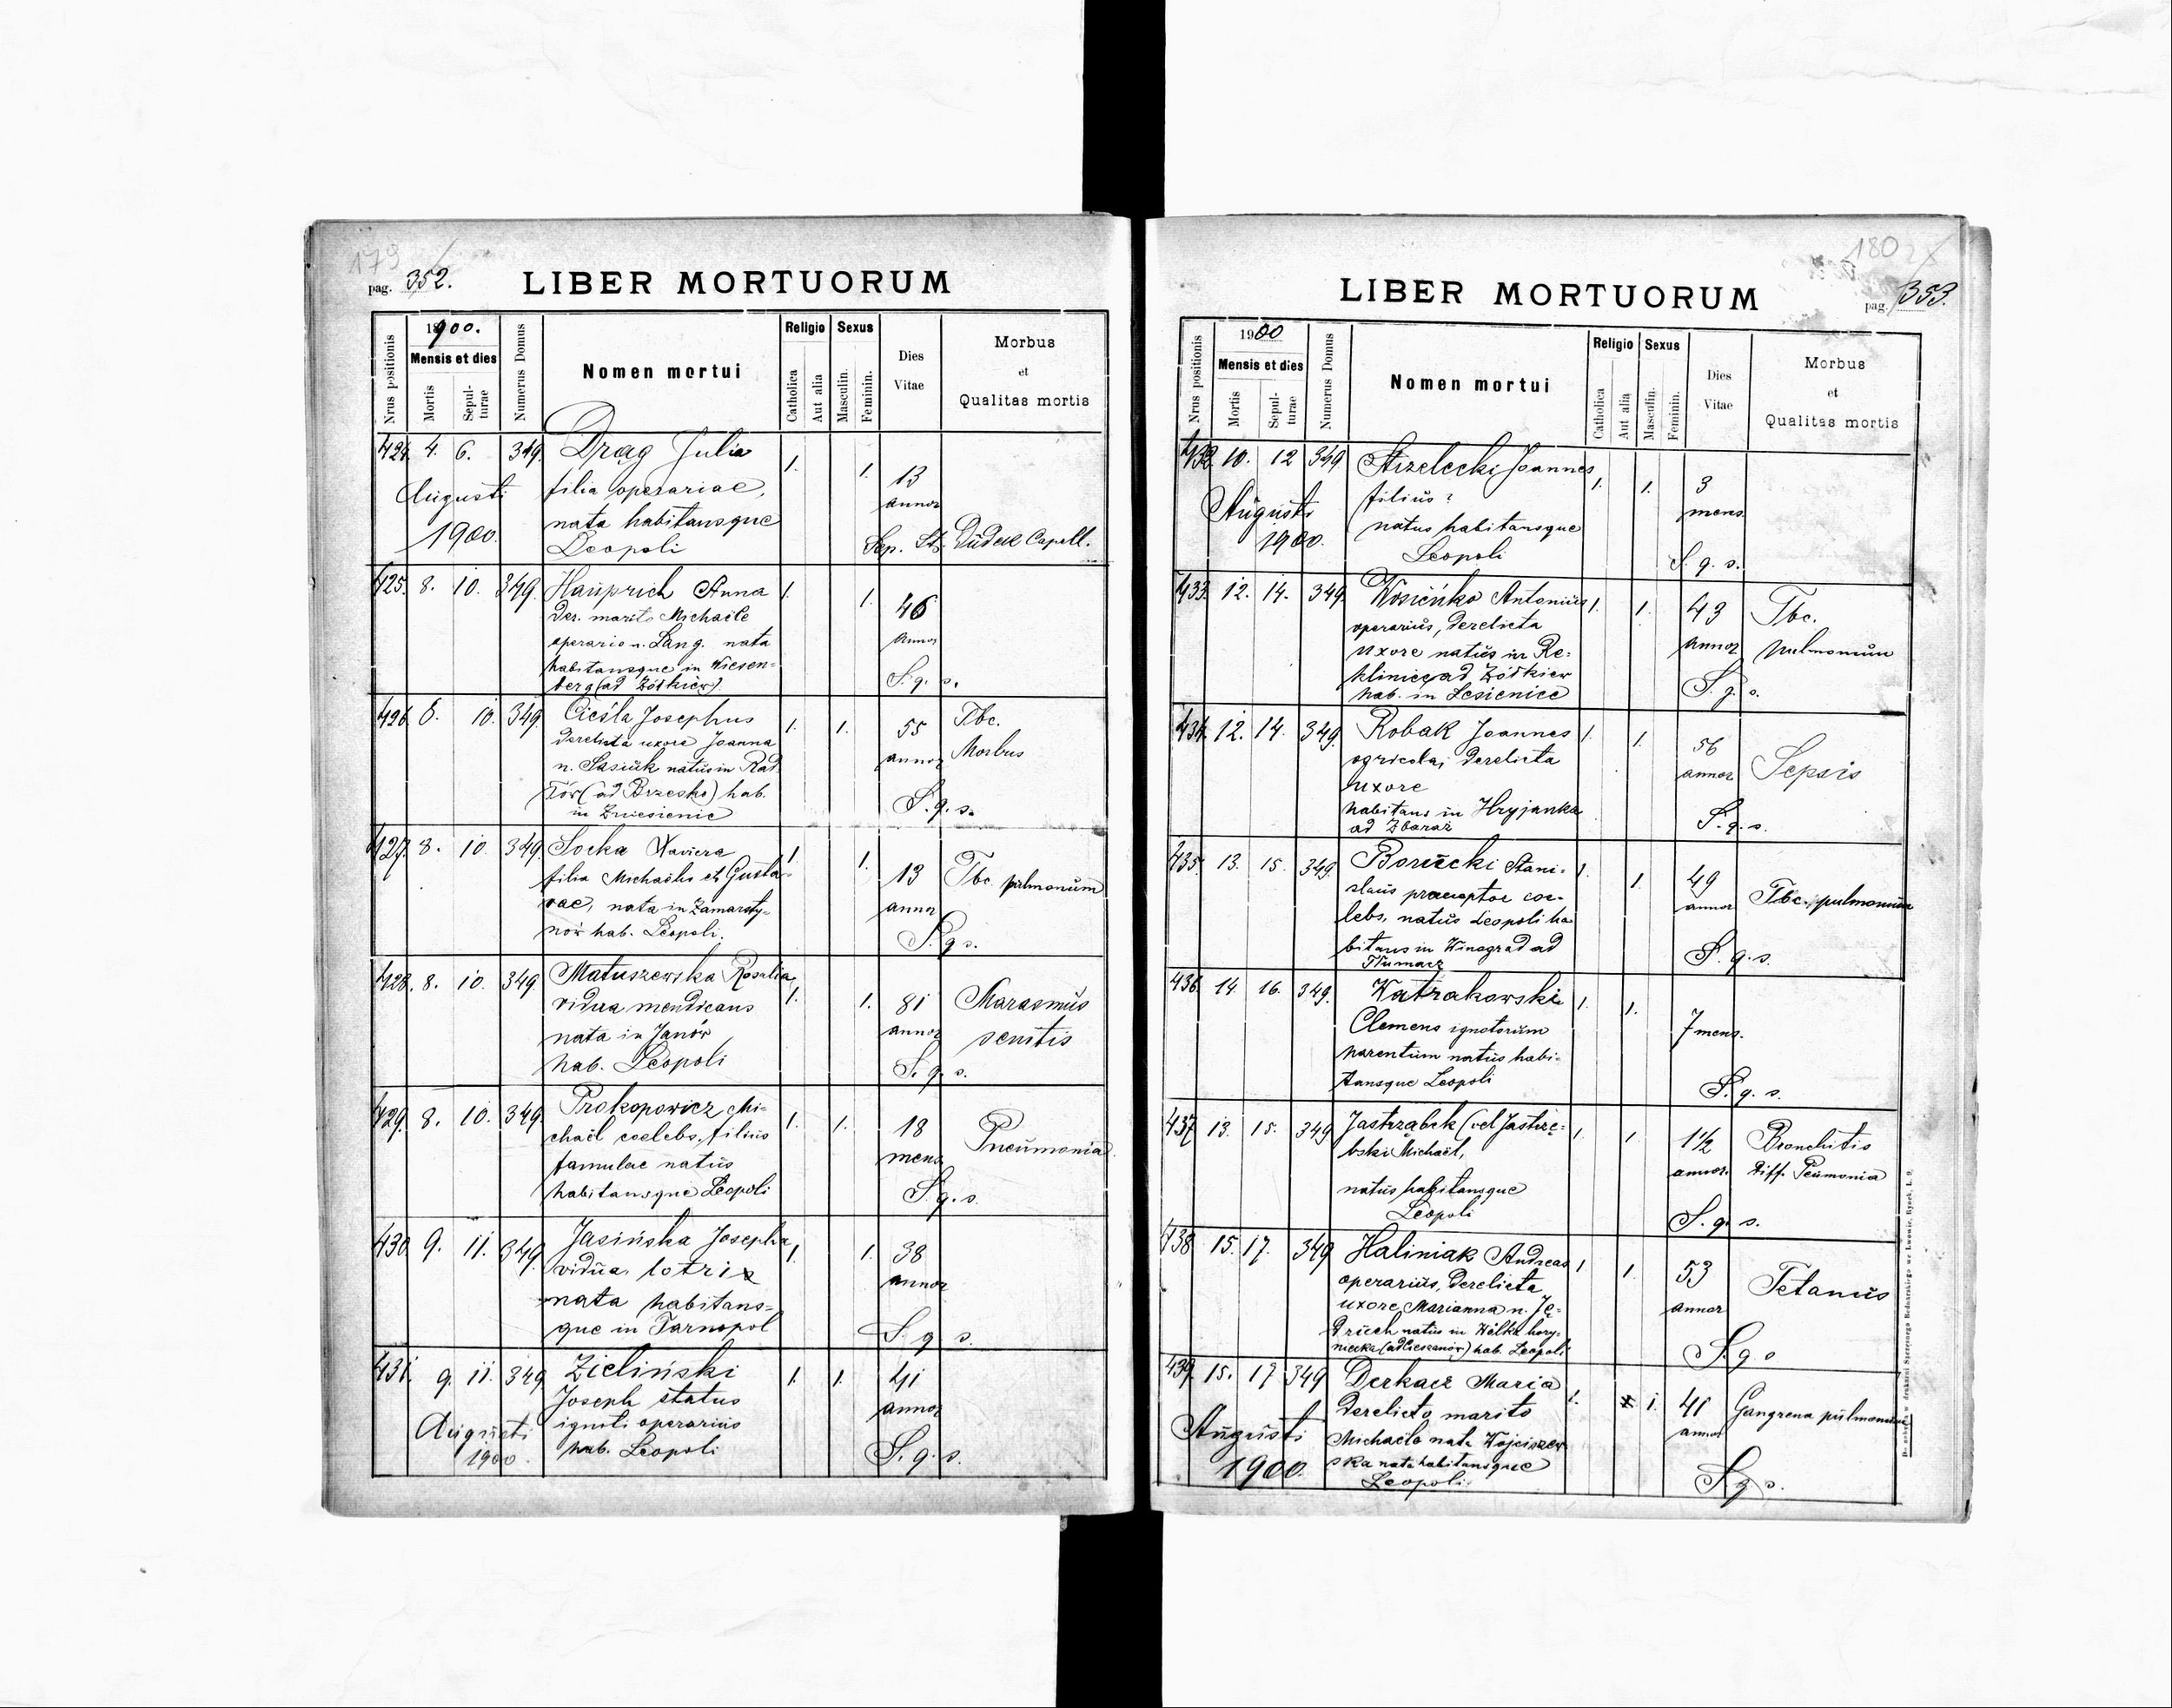 179
pag. 352.
LIBER MORTUORUM
Nrus positionis
1900.
Mensis et dies
Mortis
Sepulturae
Numerus Domus
Nomen mortui
Religio
Catholica
Aut alia
Sexus
Masculin.
Feminin.
Dies
Vitae
Morbus
et
Qualitas mortis
424. 4. 6. 349. Drag Julia 1. 1. 13
Augusti filia operariae, annor
nata habitansque
1900. Leopoli Sep. St. Dudek Capell.
425. 8. 10. 349. Hauprich Anna 1. 1. 46
Der. marito Michaële annor
operario n. Lang. nata
habitansque in Wiesen-
berg (ad Żółkiew) S. q. s.
426. 8. 10. 349. Cieśla Josephus 1. 1. 55 Tbc.
derelicta uxore Joanna annor Morbus
n. Sasiuk natus in Rad
łów (ad Brzesko) hab.
in Zniesienie S. q. s.
427. 8. 10. 349. Socha Xaviera 1. 1. 13 Tbc pulmonum
filia Michaëlis et Gusta-
vae, nata in Zamarsty- annor
nów hab. Leopoli. S. q. s.
428. 8. 10. 349. Matuszewska Rosalia 1. 1. 81 Marasmus
vidua mendicans annor senilis
nata in Janów
hab. Leopoli S. q. s.
429. 8. 10. 349. Prokopowicz Mi- 1. 1. 18 Pneumonia
chaël coelebs, filius mens
famulae natus
habitansque Leopoli S. q. s.
430. 9. 11. 349. Jasińska Josepha 1. 1. 38
vidua, lotrix annor
nata habitans-
que in Tarnopol S. q. s.
431. 9. 11. 349. Zieliński 1. 1. 41
Joseph status annor
Augusti ignoti operarius
1900. hab. Leopoli S. q. s.
180
pag. 353.
LIBER MORTUORUM
Nrus positionis
1900
Mensis et dies
Mortis
Sepulturae
Numerus Domus
Nomen mortui
Religio
Catholica
Aut alia
Sexus
Masculin.
Feminin.
Dies
Vitae
Morbus
et
Qualitas mortis
432. 10. 12 349 Strzelecki Joannes 1. 1. 3
Augusti filius ? mens.
1900. natus habitansque
Leopoli S. q. s.
433. 12. 14. 349. Wosieńko Antonius 1. 1. 43 Tbc.
operarius, derelicta annor pulmonum
uxore natus in Re-
kliniec ad Żółkiew S. q. s.
hab. in Lesienice
434. 12. 14. 349. Robak Joannes 1. 1. 56 Sepsis
agricola, derelicta annor
uxore
habitans in Hryjanka S. q. s.
ad Zbaraż
435. 13. 15. 349. Borucki Stani- 1. 1. 49 Tbc. pulmonum
slaus praeceptor coe- annor
lebs, natus Leopoli ha
bitans in Winograd ad S. q. s.
Tłumacz
436. 14. 16. 349. Watrakowski 1. 1. 7 mens.
Clemens ignotorum
parentum natus habi-
tansque Leopoli S. q. s.
437 13. 15. 349 Jastrząbek (vel Jastrzę- 1. 1. 1 1/2 Bronchitis
bski Michaël, annor. diff. Peumonia
natus habitansque
Leopoli S. q. s.
438 15. 17. 349 Haliniak Andreas 1. 1. 53 Tetanus
operarius, derelicta annor
uxore Marianna n. Ję-
druch natus in Wólka hory-
niecka (ad Cieszanów) hab. Leopoli S. q. s
439. 15. 17 349 Derkacz Maria 1. 1. 41 Gangrena pulmonum
derelicto marito annor
Augusti Michaële nata Wojciszew
1900. ska nata habitansque
Leopoli. S. q. s.